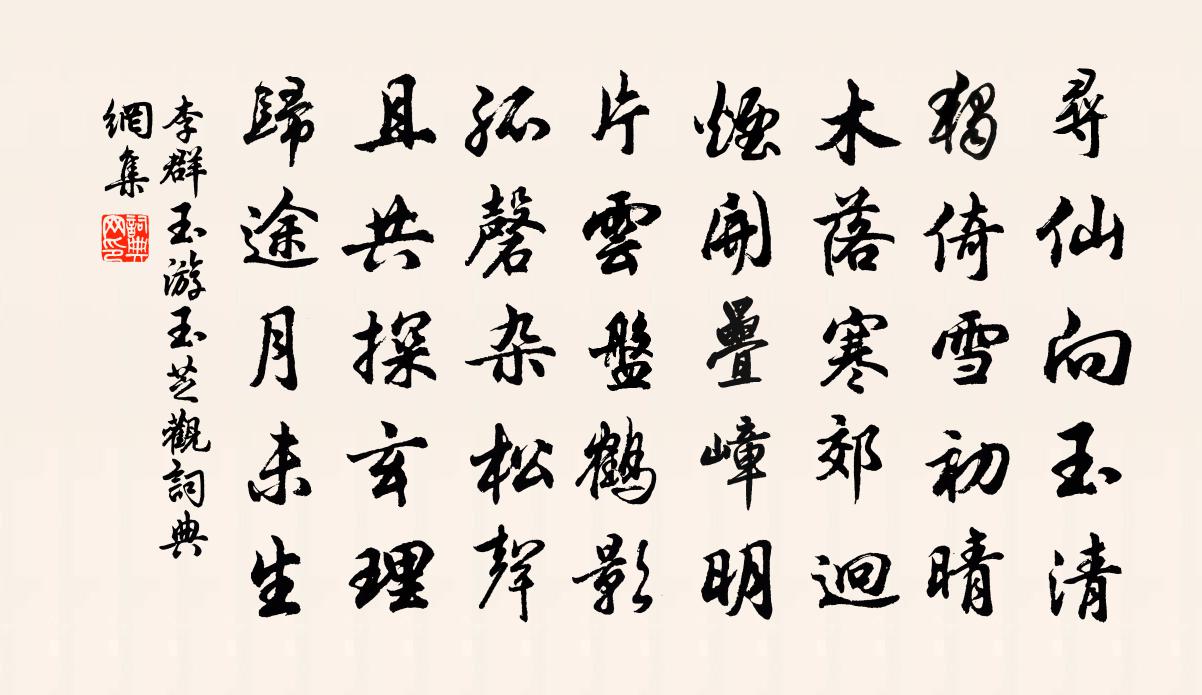 尋仙向玉清
獨倚雪初晴
木落寒郊迥
煙開疊嶂明
片雲盤鶴影
孤磬杂松聲
且共探玄理
歸途月未生
李群玉游玉芝觀詞典
網集
詞典網印